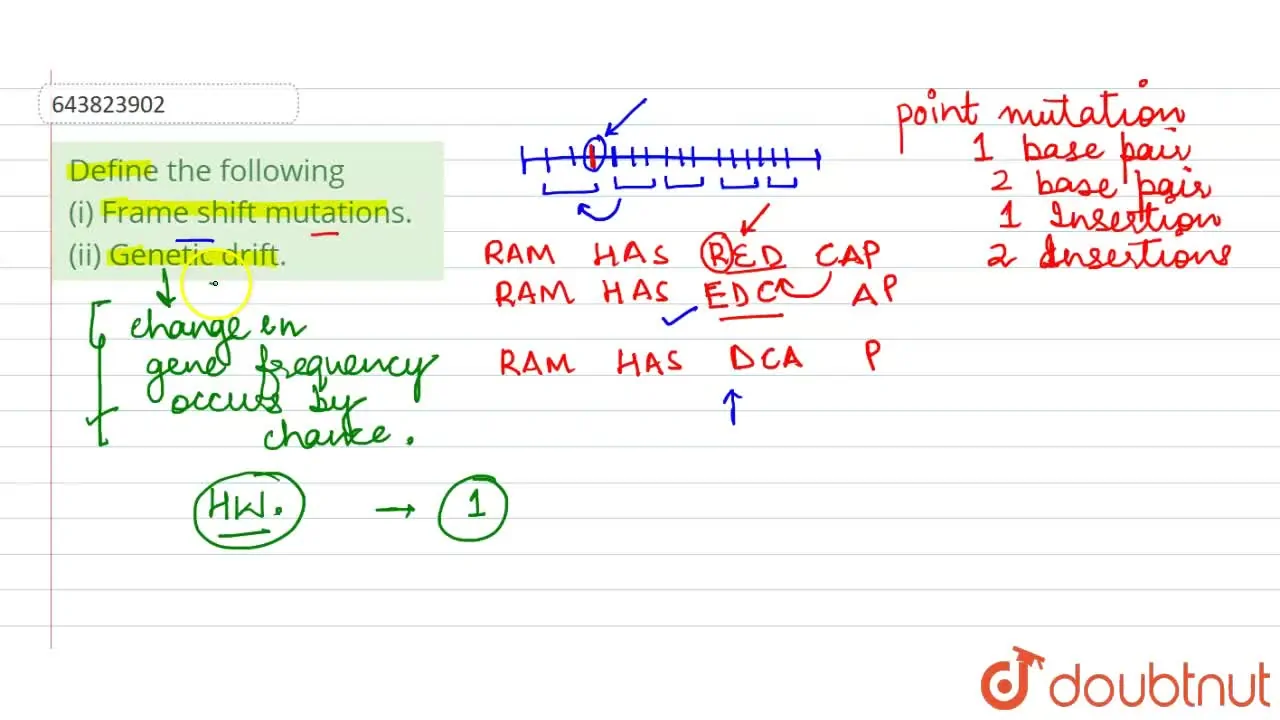 643823902
Define the following
(i) Frame shift mutations.
(ii) Genetic drift.
change in
gene frequency
occurs by
chance.
HW. → 1
RAM HAS RED CAP
RAM HAS EDC AP
RAM HAS DCA P
point mutation
1 base pair
2 base pairs
1 Insertion
2 Insertions
doubtnut